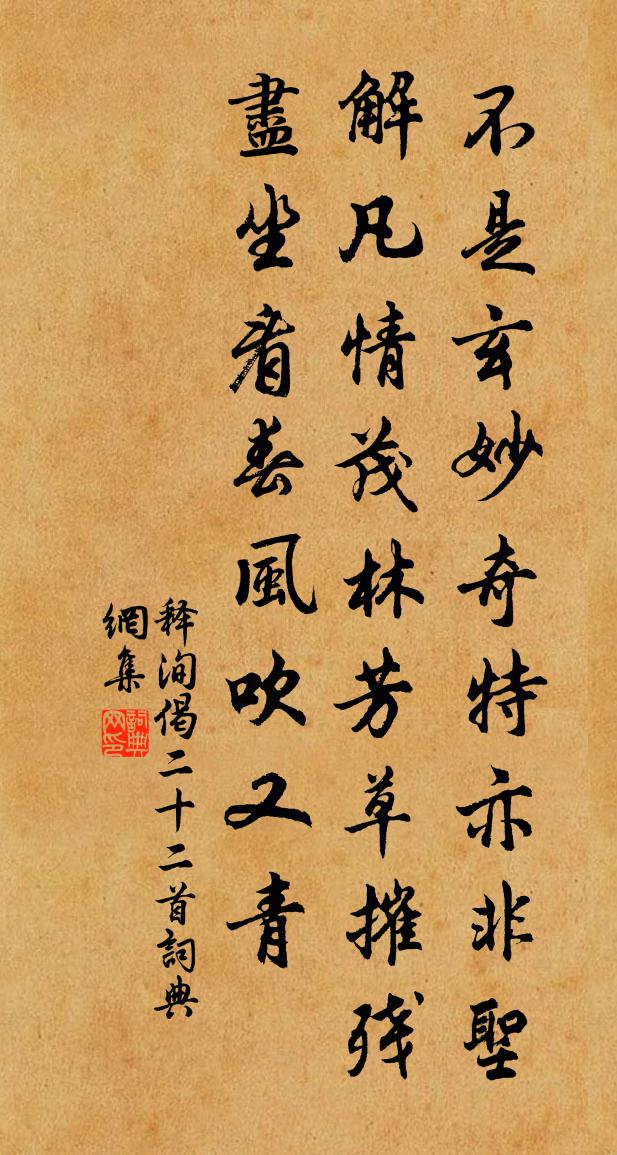 不是玄妙奇特亦非聖
解凡情茂林芳草摧残
盡坐看春風吹又青
释洵偈二十二首詞典
網集
詞典
网印